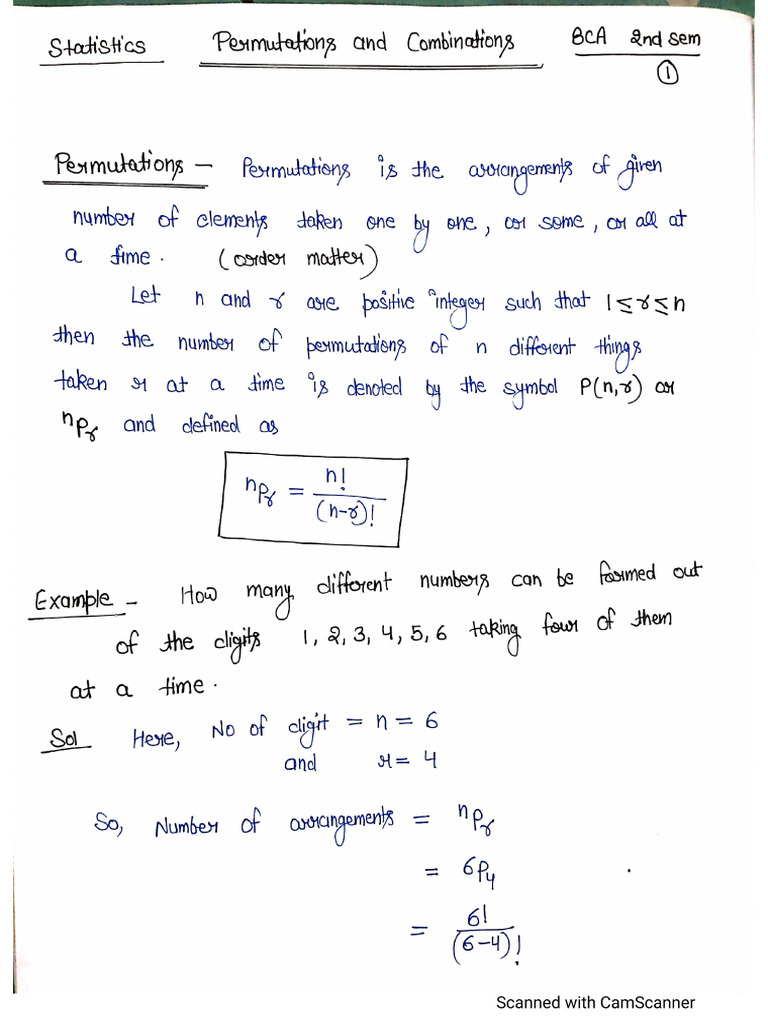 Statistics Permutations and Combinations BCA 2nd sem
1
Permutations – Permutations is the arrangements of given
number of elements taken one by one, or some, or all at
a time. (order matter)
Let n and r are positive integer such that 1≤r≤n
then the number of permutations of n different things
taken r at a time is denoted by the symbol P(n,r) or
nPr and defined as
nPr = n!/(n-r)!
Example – How many different numbers can be formed out
of the digits 1, 2, 3, 4, 5, 6 taking four of them
at a time.
Sol Here, No of digit = n = 6
and r = 4
So, Number of arrangements = nPr
= 6P4
= 6!/(6-4)!
Scanned with CamScanner